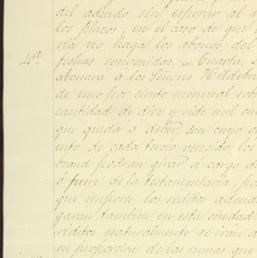 del adeudo sin esperar al
los plazos, en el caso de que
ria no haga los abonos del
fechas convenidas. Cuarta.
4ª.
abonará a los Señores Hildebrand
de uno por ciento mensual sobre
cantidad de diez y siete mil
que queda a deber, con cuyo
ento de cada tercio vencido, los
brand podrán girar á cargo de
ó fuera de la testamentaria, por
que importe los réditos adeud
garán también en esta ciudad
réditos naturalmente se irán
en proporción de las sumas que